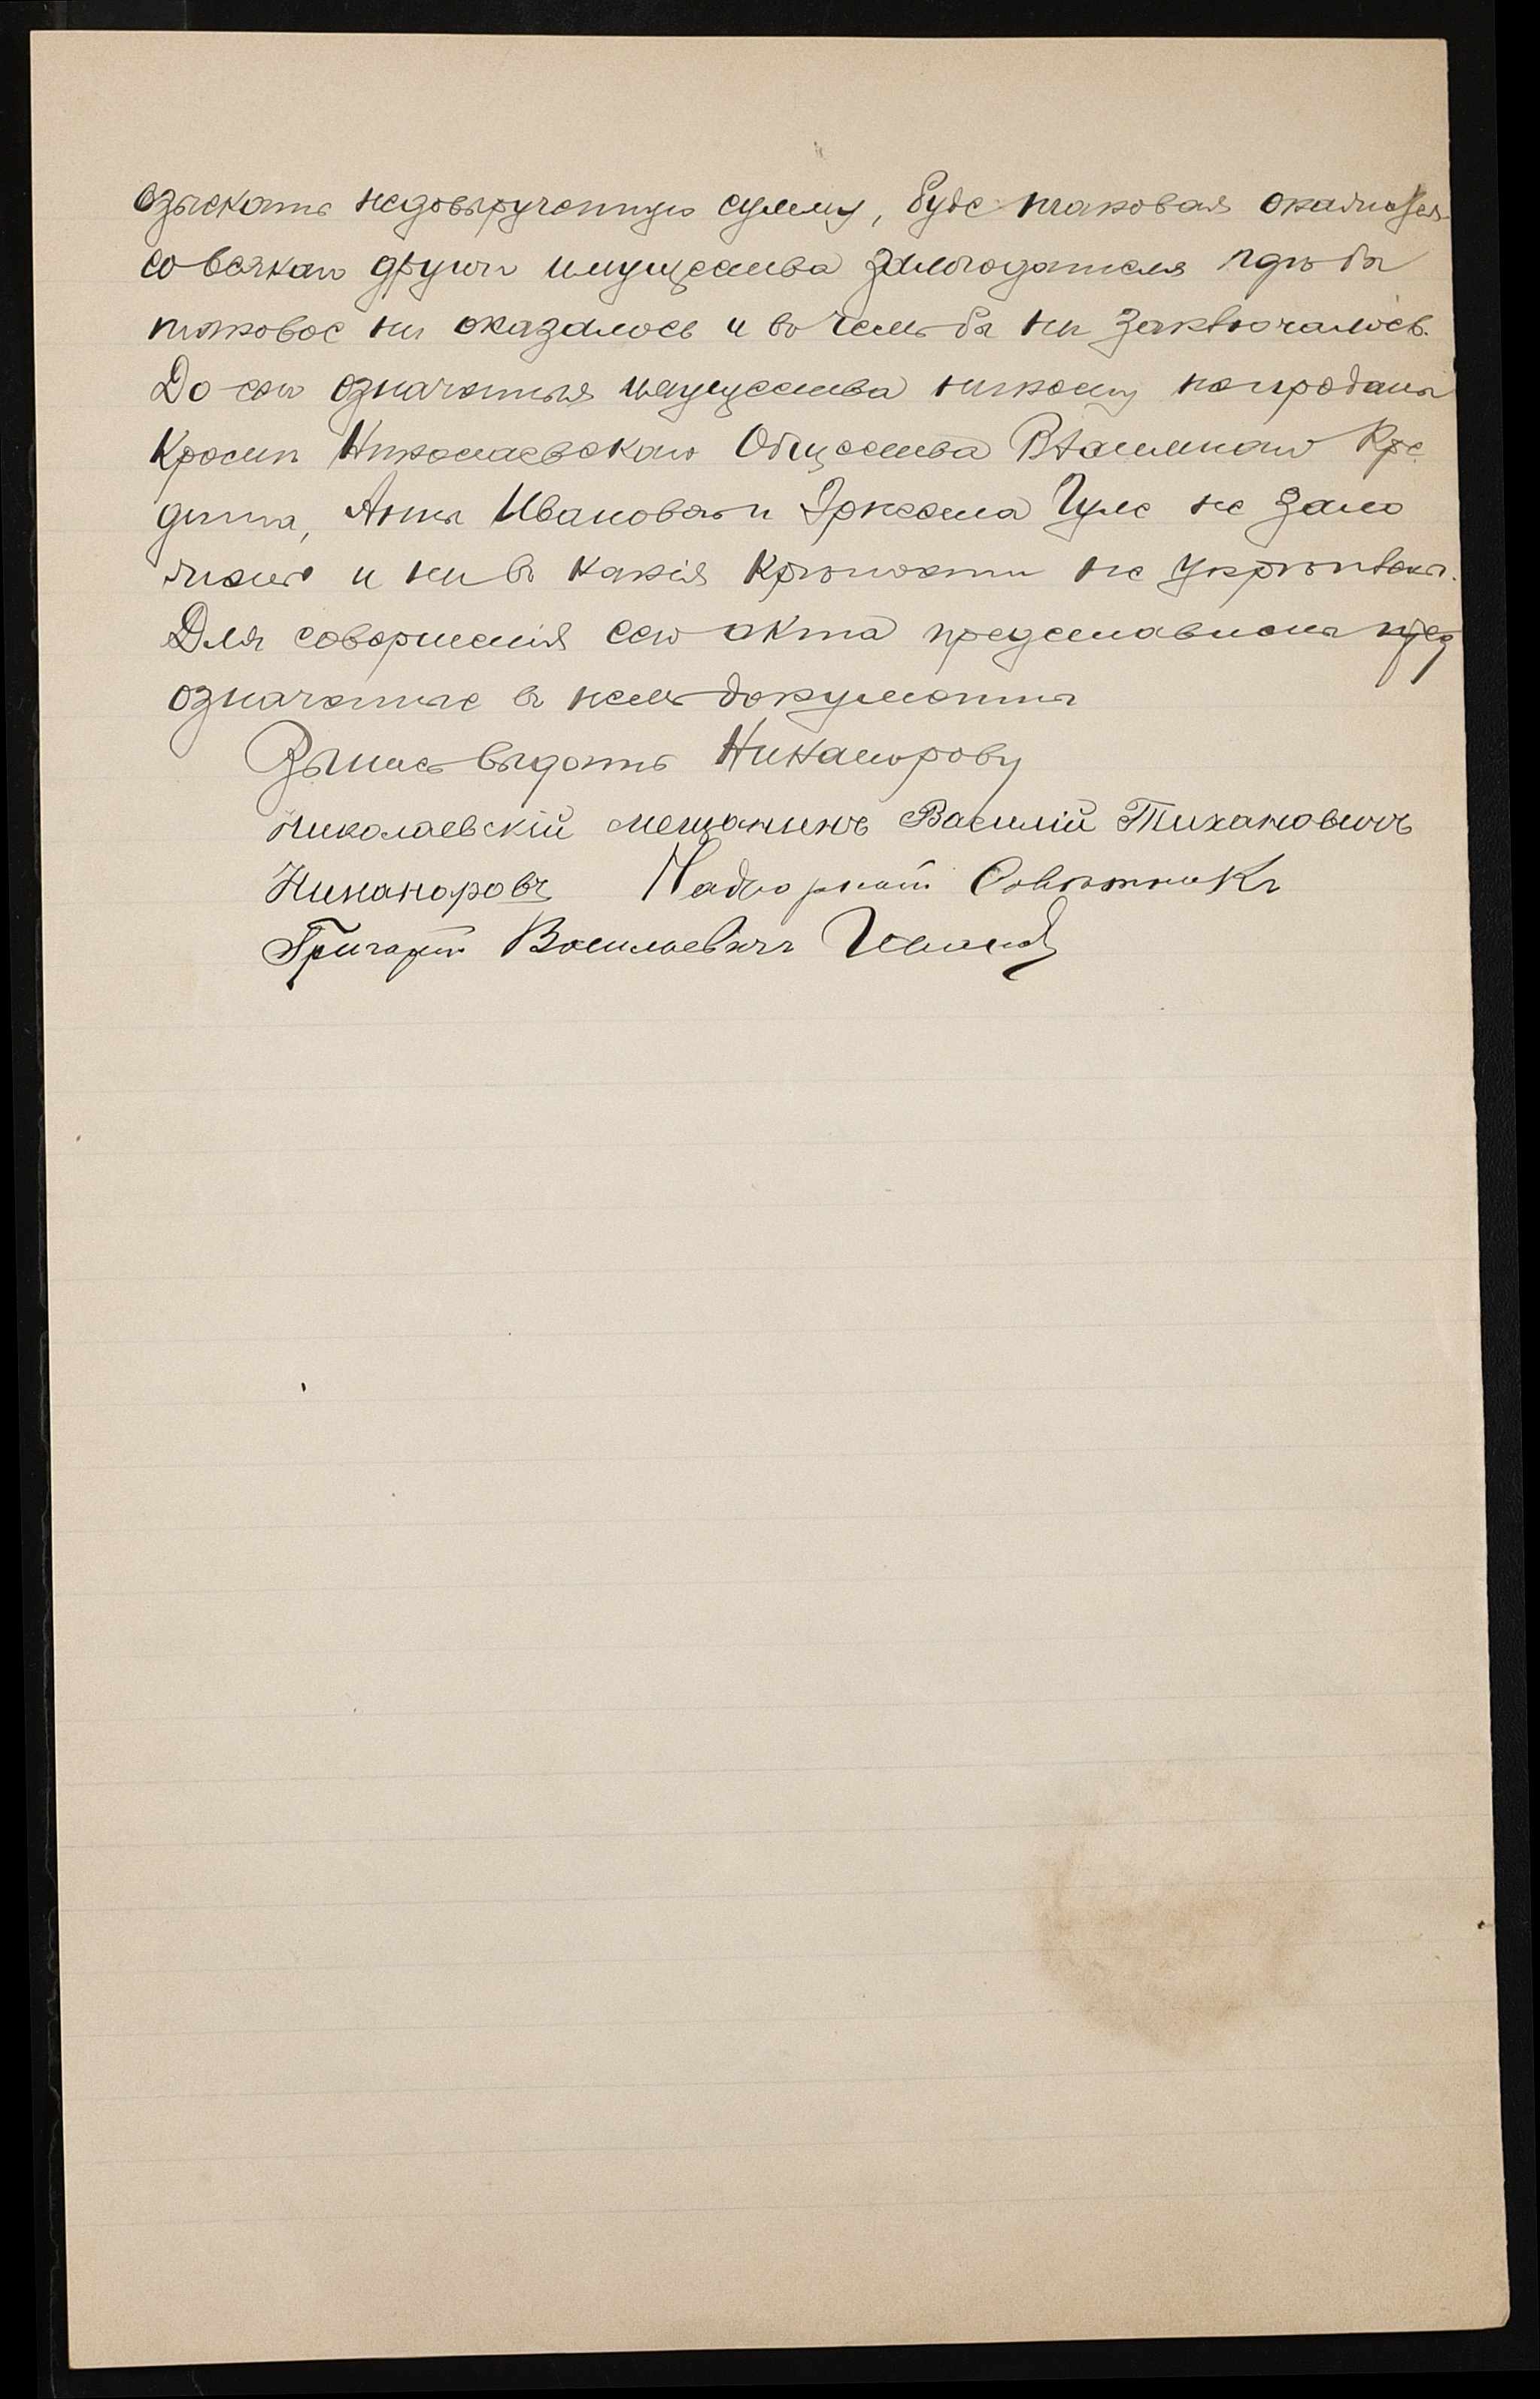 взыскать недовырученную сумму, буде таковая окажется
со всякаго другаго имущества залогодателя гдѣ бы
таковое ни оказалось и въ чемъ бы ни заключалось.
До сего означенныя имущества никому не проданы
кромѣ Николаевскаго Общества Взаимнаго Кре
дита, Анны Ивановой и Эрнеста не зало
жены и ни въ какія крѣпости не укрѣплены.
Для совершенія сего акта представлены пред
означенные въ немъ документы
выдать Никанорову
Николаевскій мещанинъ Василій Тихановичъ
Никаноровъ Надворный Совѣтникъ
Григорій Васильевичъ